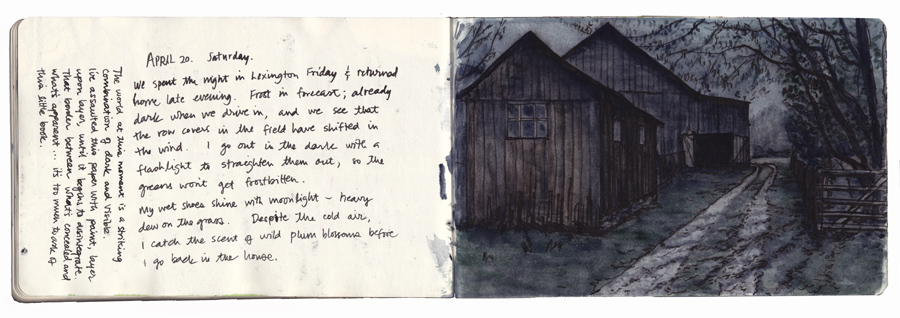 APRIL 20. Saturday.
We spent the night in Lexington Friday & returned
home late evening. Frost in forecast; already
dark when we drive in, and we see that
the row covers in the field have shifted in
the wind. I go out in the dark with a
flashlight to straighten them out, so the
greens won't get frostbitten.
My wet shoes shine with moonlight – heavy
dew on the grass. Despite the cold air,
I catch the scent of wild plum blossoms before
I go back in the house.
The world at this moment is a striking
combination of dark and visible.
I've assaulted this paper with paint, layer
upon layer, until it begins to disintegrate.
That border between what's concealed and
what's apparent ... it's too much to ask of
this little book.